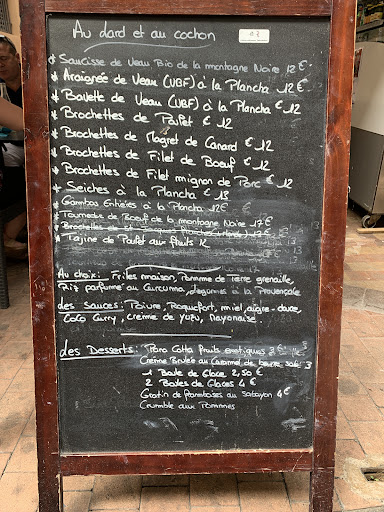 Au dard et au cochon
* Saucisse de Veau Bio de la montagne Noire 12 €
* Araignée de Veau (UBF) à la Plancha 12 €
* Bavette de Veau (UBF) à la Plancha € 12
* Brochettes de Poulet € 12
* Brochettes de Magret de Canard € 12
* Brochettes de Filet de Boeuf € 12
* Brochettes de Filet mignon de Porc € 12
* Seiches à la Plancha € 13
* Gambas Entières à la Plancha 12€
* Tournedos de Boeuf de la montagne Noire 17€
* Brochettes de St Jacques 17€
* Tajine de Poulet aux fruits
Au choix: Frites maison, Pomme de Terre grenaille,
Riz parfumé au Curcuma, légumes à la Provençale
des sauces: Poivre, Roquefort, miel, aigre-douce,
Coco Curry, crème de yuzu, Mayonaise.
des Desserts: Pana Cotta fruits exotiques 3 €
Crème Brulée au Caramel de beurre salé 3
1 Boule de Glace 2,50 €
2 Boules de Glaces 4 €
Gratin de framboises au sabayon 4 €
Crumble aux Pommes